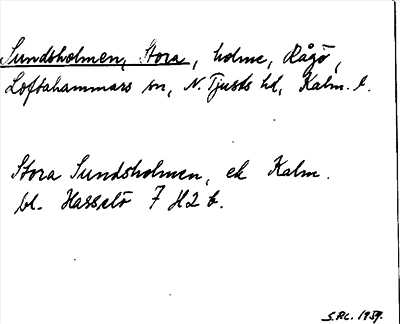 Sundsholmen, Stora, holme, Rågö,
Loftahammars sn, N. Tjusts hd, Kalm. l.
Stora Sundsholmen, ek Kalm.
bl. Hasselö 7 H2 b.
1959.